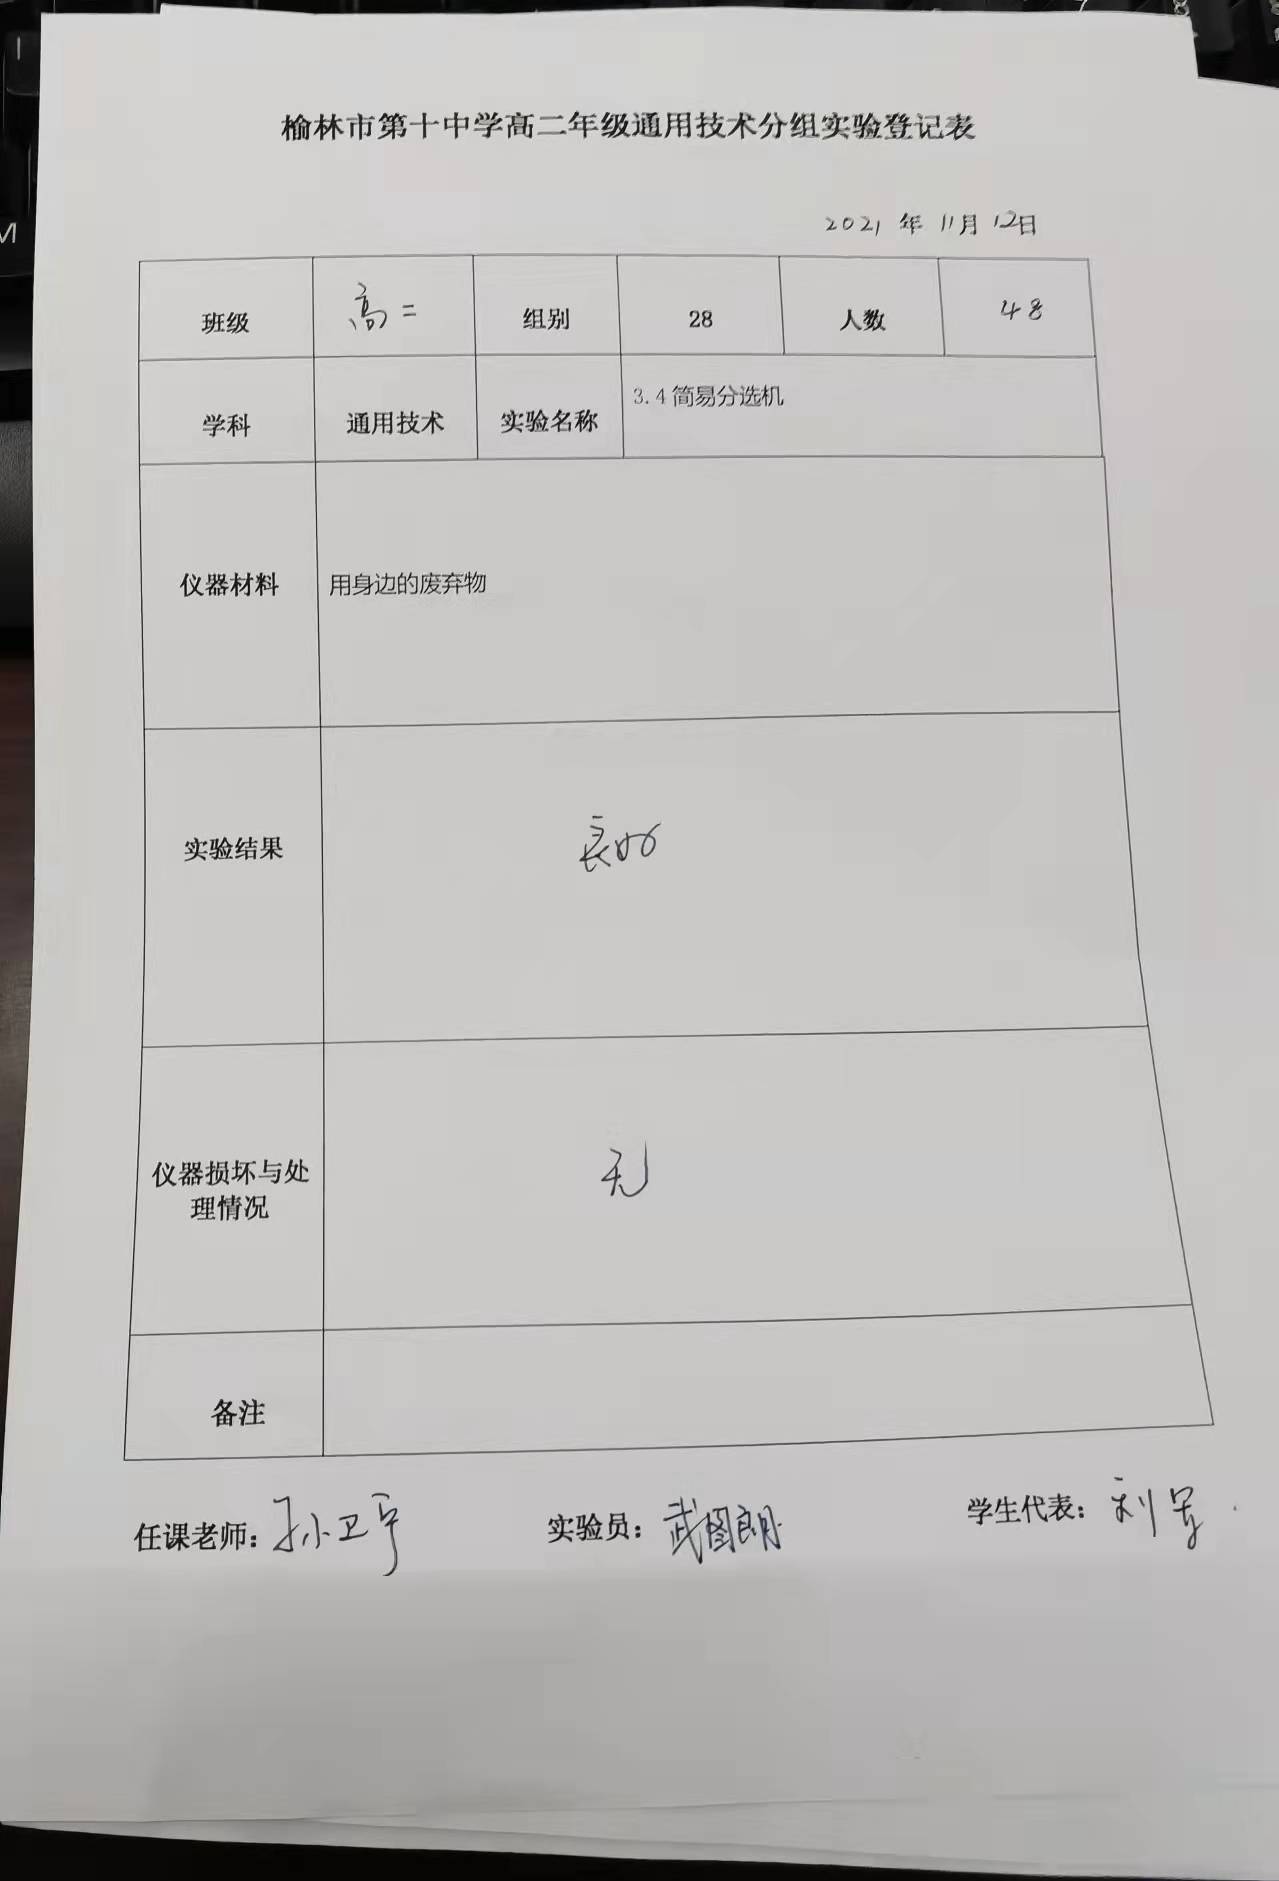 榆林市第十中学高二年级通用技术分组实验登记表
2021 年 11月 12日
班级 高二 组别 28 人数 48
学科 通用技术 实验名称 3.4简易分选机
仪器材料 用身边的废弃物
实验结果 良好
仪器损坏与处
理情况 无
备注
任课老师: 孙卫平 实验员: 武图朗 学生代表: 刘
M